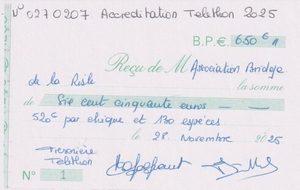 N° 0270207 Accreditation Telethon 2025
B.P.€ 650 €
Reçu de M Association Bridge
de la Risle la somme
de Six cent cinquante euros
520€ par chèque et 130 espèces
le 28 Novembre 2025
Trésorière
Telethon
N° 1